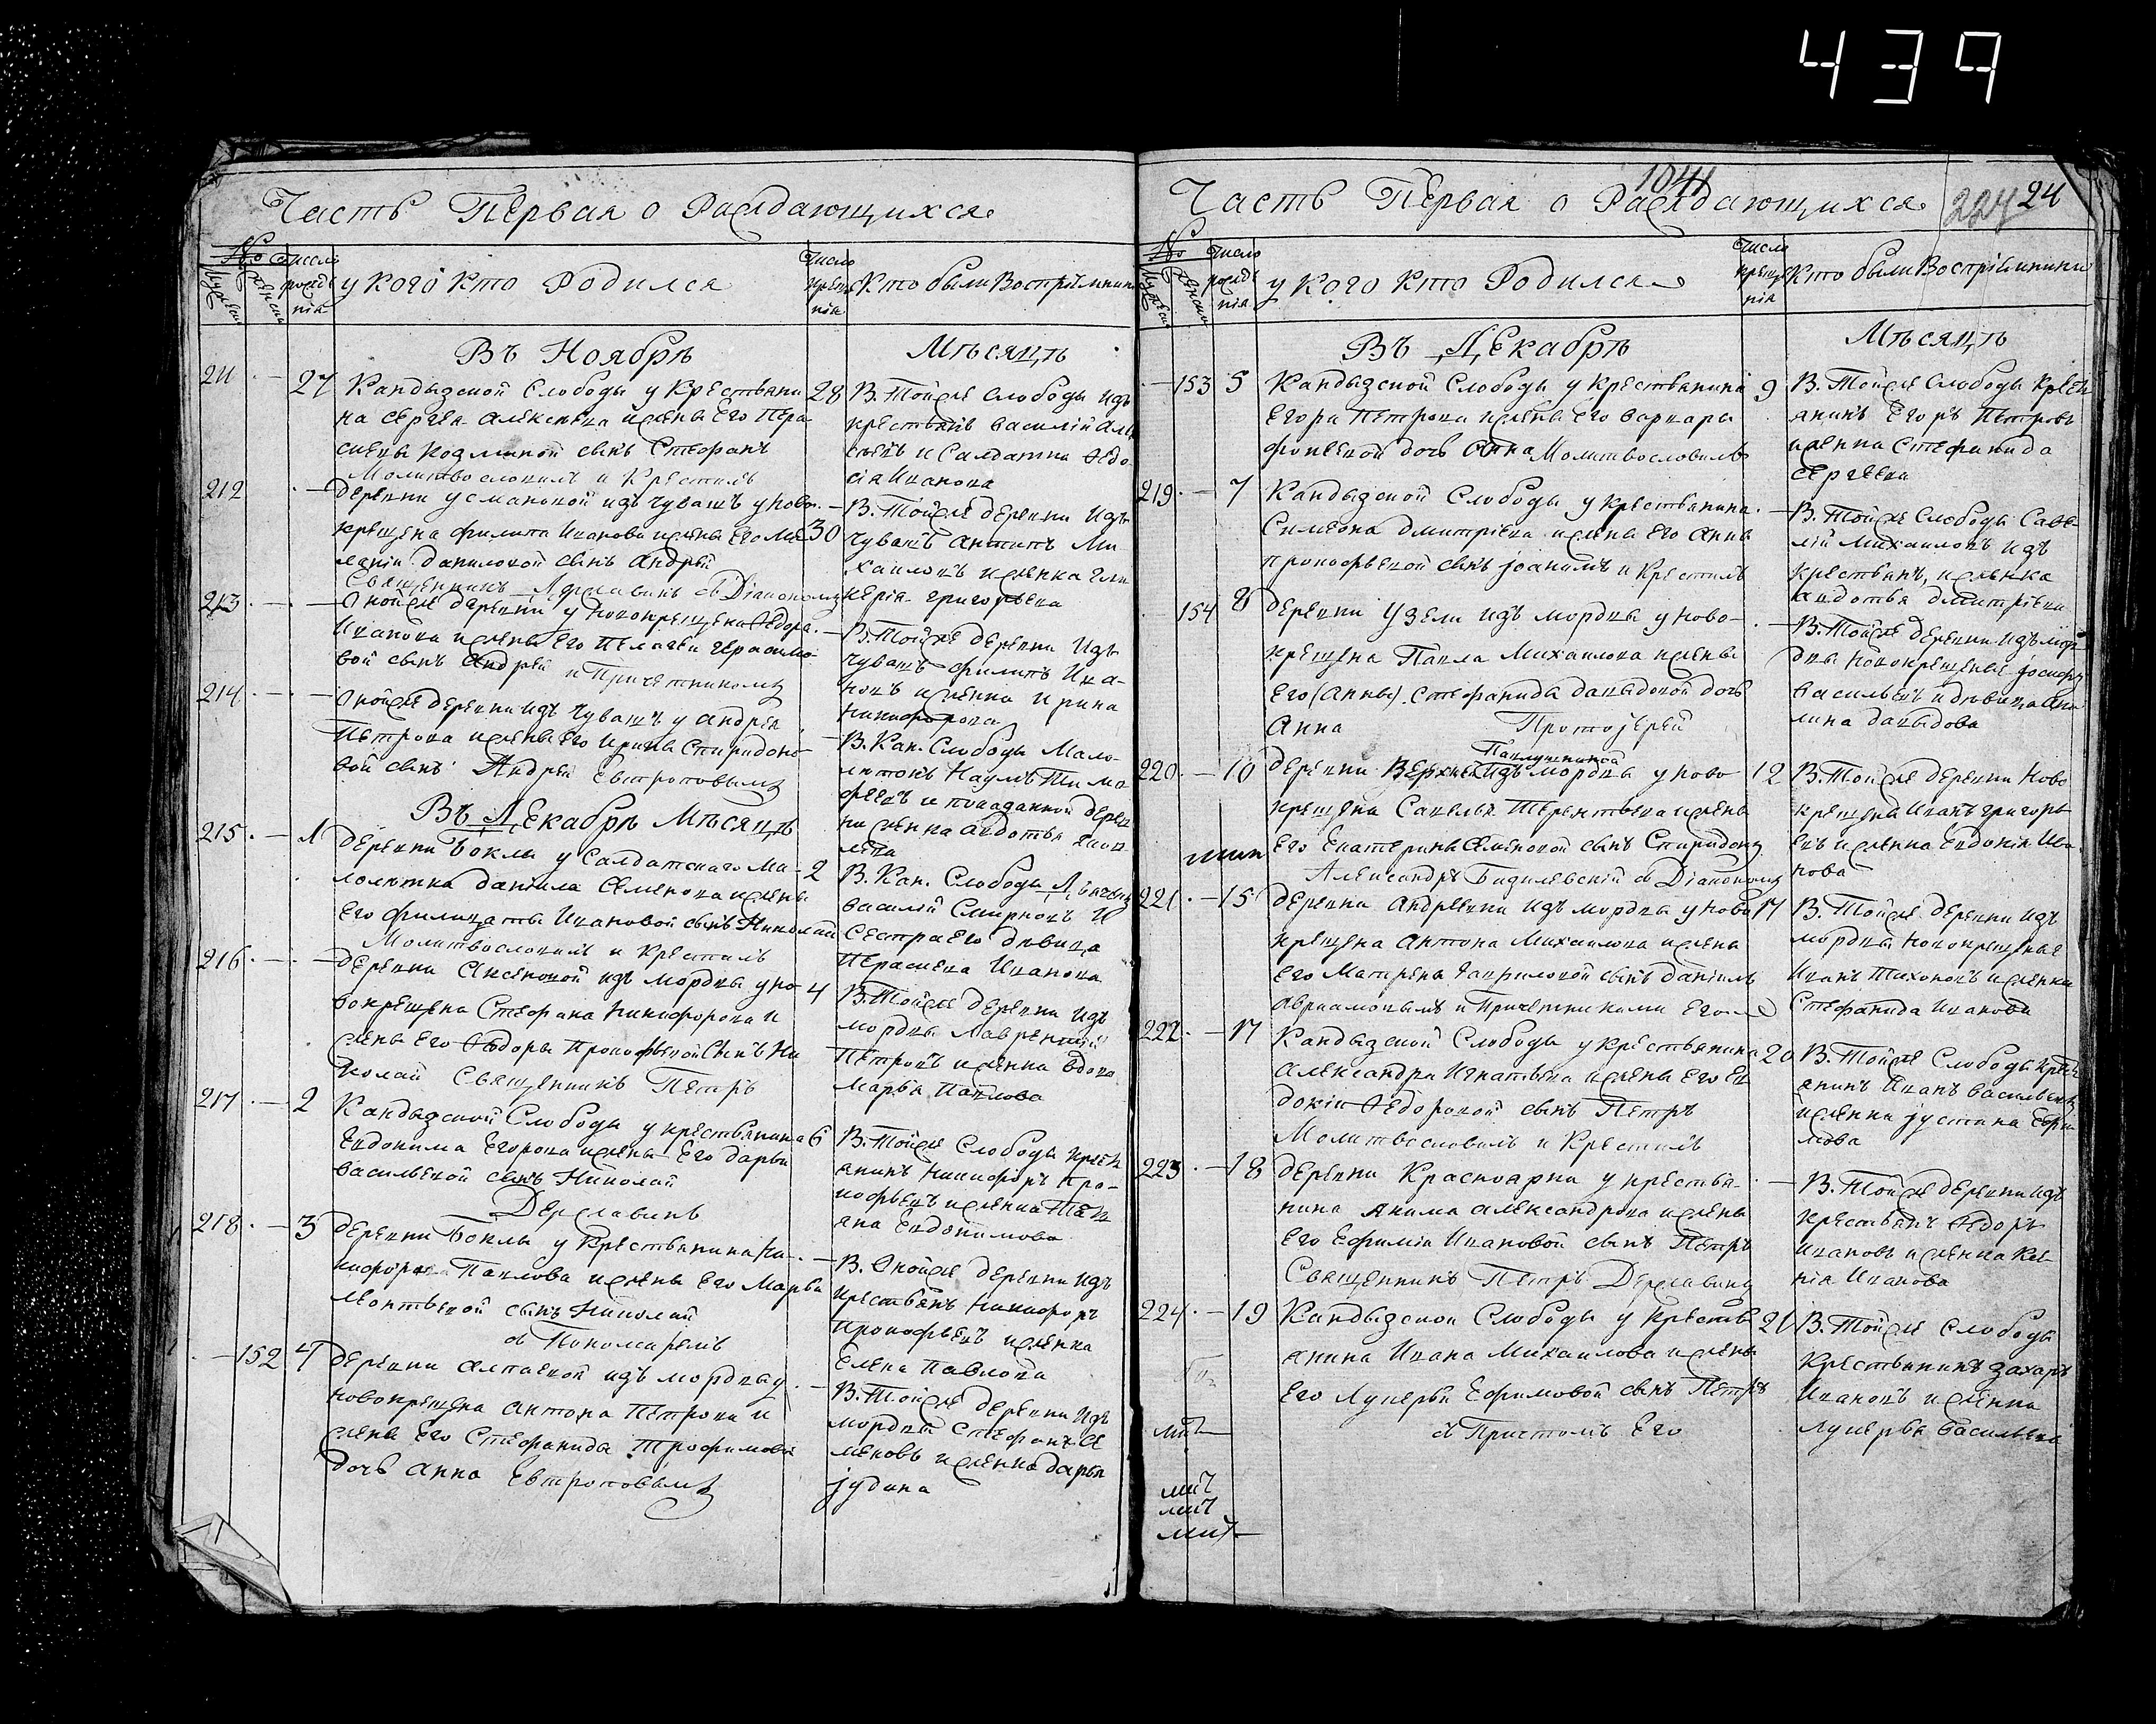 439
Часть Первая о Раждающихся
№
Число рожденія
у кого кто Родился
Число крещенія
Кто были Воспріемники
Въ Ноябрѣ
Мѣсяцѣ
211 27 28
Кандызской Слободы у Крестьяни
на Сергея Алексѣева и жены Его Пара
сковьи Козминой сынъ Стефанъ
Молитвословилъ и Крестилъ
В. Тойже Слободы изъ
крестьянъ Василій Але
и Салдатка Ѳедо
сія Иванова
212 30
деревни Усмановой изъ чувашъ у ново
крещена Филипа Иванова и жены Его Ме
ланіи Даниловой сынъ Андрей
Священникъ Державинъ съ Діакономъ
В. Тойже деревни изъ
чувашъ Антипъ Ми
хаиловъ и женка Гли
керія Григорьева
213
Онойже деревни у Новокрещена Ѳедора
Иванова и жены Его Пелагеи Герасимо
вой сынъ Андрей и Причетникомъ
В. Тойже деревни изъ
чувашъ Филипъ Ива
новъ и женка Ирина
Никифорова
214
Онойже деревни изъ чувашъ у Андрея
Петрова и жены Его Ирины Спиридоно
вой сынъ Андрей Евтроповымъ
В. Кан. Слободы Мало
лѣтокъ Наумъ Тимо
феевъ и деревни
женка Авдотья
Въ Декабрѣ Мѣсяцѣ
215 1 2
деревни Боклы у Салдатскаго Ма
лолѣтка Данила Семенова и жены
Его Филицаты Ивановой сынъ Николай
Молитвословилъ и Крестилъ
В. Кан. Слободы Дьячекъ
Василій Смирновъ и
Сестра Его дѣвица
Парасковья Иванова
216 4
деревни Аксеновой изъ мордвы у но
вокрещена Стефана Никифорова и
жены Его Ѳедоры Прокофьевой Сынъ Ни
колай Священникъ Петръ
В. Тойже деревни изъ
мордвы Лаврентій
Петровъ и женка вдова
Марья Павлова
217 2 6
Кандызской Слободы у крестьянина
Евдокима Егорова и жены Его Дарьи
Васильевой сынъ Николай
Державинъ
В. Тойже Слободы крест
янинъ Никифоръ Про
кофьевъ и женка Тат
яна Евдокимова
218 3
деревни Боклы у Крестьянина Ни
кифора Павлова и жены Его Марьи
Леонтьевой сынъ Николай
съ Пономаремъ
В. Онойже деревни изъ
крестьянъ Никифоръ
Прокофьевъ и женка
Елена Павлова
152 4
деревни Алпаевой изъ мордвы у
новокрещена Антона Петрова и
жены Его Стефаниды Трофимовой
дочь Анна Евтроповымъ
В. Тойже деревни изъ
мордвы Стефанъ Се
меновъ и женка Дарья
Іудина
1041
224 24
Часть Первая о Раждающихся
№
Число рожденія
у кого кто Родился
Число крещенія
Кто были Воспріемники
Въ Декабрѣ
Мѣсяцѣ
153 5 9
Кандызской Слободы у крестьянина
Егора Петрова и жены Его Варвары
дочь Анна Молитвословилъ
В. Тойже Слободы Крест
янинъ Егоръ Петровъ
и женка Стефанида
Сергѣева
219 7
Кандызской Слободы у крестьянина
Симеона Дмитріева и жены Его Анны
Прокофьевой сынъ Іоакимъ и Крестилъ
В. Тойже Слободы Саве
лій Михаиловъ изъ
крестьянъ, и женка
Авдотья Дмитріева
154 8
деревни Узели изъ мордвы у ново
крещена Павла Михаилова и жены
Его (Анны) Стефаниды Давыдовой дочь
Анна Протоіерей
В. Тойже деревни изъ мор
двы новокрещеный Іосифъ
Васильевъ и дѣвица Аку
лина Давыдова
220 10 12
Павлушкиной
деревни изъ мордвы у ново
крещена Савелья Терентьева и жены
Его Екатерины Семеновой сынъ Спиридонъ
Александръ Базилевскій съ Діакономъ
В. Тойже деревни Ново
крещены Иванъ Григорь
евъ и женка Евдокія Ива
нова
221 15 17
деревни Андреевки изъ мордвы у ново
крещена Антона Михаилова и жены
Его Матрены Гавриловой сынъ Даніилъ
Авраамовымъ и Причетниками Его
В. Тойже деревни изъ
мордвы Новокрещеные
Иванъ Тихоновъ и женка
Стефанида Иванова
222 17 20
Кандызской Слободы у крестьянина
Александра Игнатьева и жены Его Ев
докіи Ѳедоровой сынъ Петръ
Молитвословилъ и Крестилъ
В. Тойже Слободы крест
янинъ Иванъ Васильевъ
и женка Іустина Ефи
мова
223 18
деревни Красноярки у крестья
нина Якима Александрова и жены
Его Ефиміи Ивановой сынъ Петръ
Священникъ Петръ Державинъ
В. Тойже деревни изъ
крестьянъ Ѳедоръ
Ивановъ и женка Ксе
нія Иванова
224 19 21
Кандызской Слободы у крестья
янина Ивана Михаилова и жены
Его Лукерьи Ефимовой сынъ Петръ
съ Причтомъ Его
В. Тойже Слободы
Крестьянинъ Захаръ
Ивановъ и женка
Лукерья Васильева